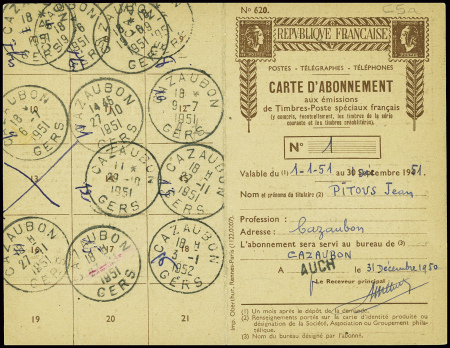 N° 620.
C5a
RÉPUBLIQUE FRANÇAISE
POSTES - TÉLÉGRAPHES - TÉLÉPHONES
CARTE D'ABONNEMENT
aux émissions
de Timbres-Poste spéciaux français
(y compris, éventuellement, les timbres de la série
courante et les timbres préoblitérés).
N° 1
Valable du (1) 1-1-51 au 31 Décembre 1951.
Nom et prénoms du titulaire (2) PITOUS Jean
Profession :
Adresse : Cazaubon
L'abonnement sera servi au bureau de (3)
CAZAUBON
A AUCH le 31 Décembre 1950
Le Receveur principal
(1) Un mois après le dépôt de la demande.
(2) Renseignements portés sur la carte d'identité produite ou
désignation de la Société, Association ou Groupement phila-
télique.
(3) Bureau désigné par l'abonné.
Imp. Oberthur, Rennes-Paris
CAZAUBON
18 H
9-7
1951
GERS
CAZAUBON
6-7
1951
GERS
CAZAUBON
1445
27-10
1951
GERS
13
CAZAUBON
11 *
29-10
1951
GERS
CAZAUBON
18 H
-11
1951
GERS
CAZAUBON
18 H
27
1951
GERS
CAZAUBON
18 H
1951
GERS
CAZAUBON
18 H
5-1
1952
GERS
19
20
21